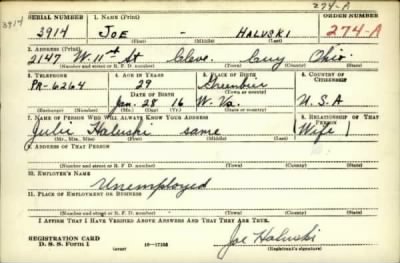 274-A
3914
SERIAL NUMBER 1. NAME (Print) ORDER NUMBER
3914 JOE - HALUSKI 274-A
2. ADDRESS (Print)
2147 W. 11th St Cleve. Cuy Ohio.
(Number and street or R. F. D. number) (Town) (County) (State)
3. TELEPHONE 4. AGE IN YEARS 5. PLACE OF BIRTH 6. COUNTRY OF CITIZENSHIP
PR-6264 29 Greenbrier
DATE OF BIRTH (Town or county)
Jan. 28 16 W. Va. U.S.A
(Exchange) (Number) (Mo.) (Day) (Yr.) (State or country)
7. NAME OF PERSON WHO WILL ALWAYS KNOW YOUR ADDRESS 8. RELATIONSHIP OF THAT PERSON
Julie Haluski same (Wife)
(Mr., Mrs., Miss) (First) (Middle) (Last)
9. ADDRESS OF THAT PERSON
(Number and street or R. F. D. number) (Town) (County) (State)
10. EMPLOYER'S NAME
Unemployed
11. PLACE OF EMPLOYMENT OR BUSINESS
(Number and street or R. F. D. number) (Town) (County) (State)
I AFFIRM THAT I HAVE VERIFIED ABOVE ANSWERS AND THAT THEY ARE TRUE.
REGISTRATION CARD Joe Haluski
D. S. S. Form 1 (Registrant's signature)